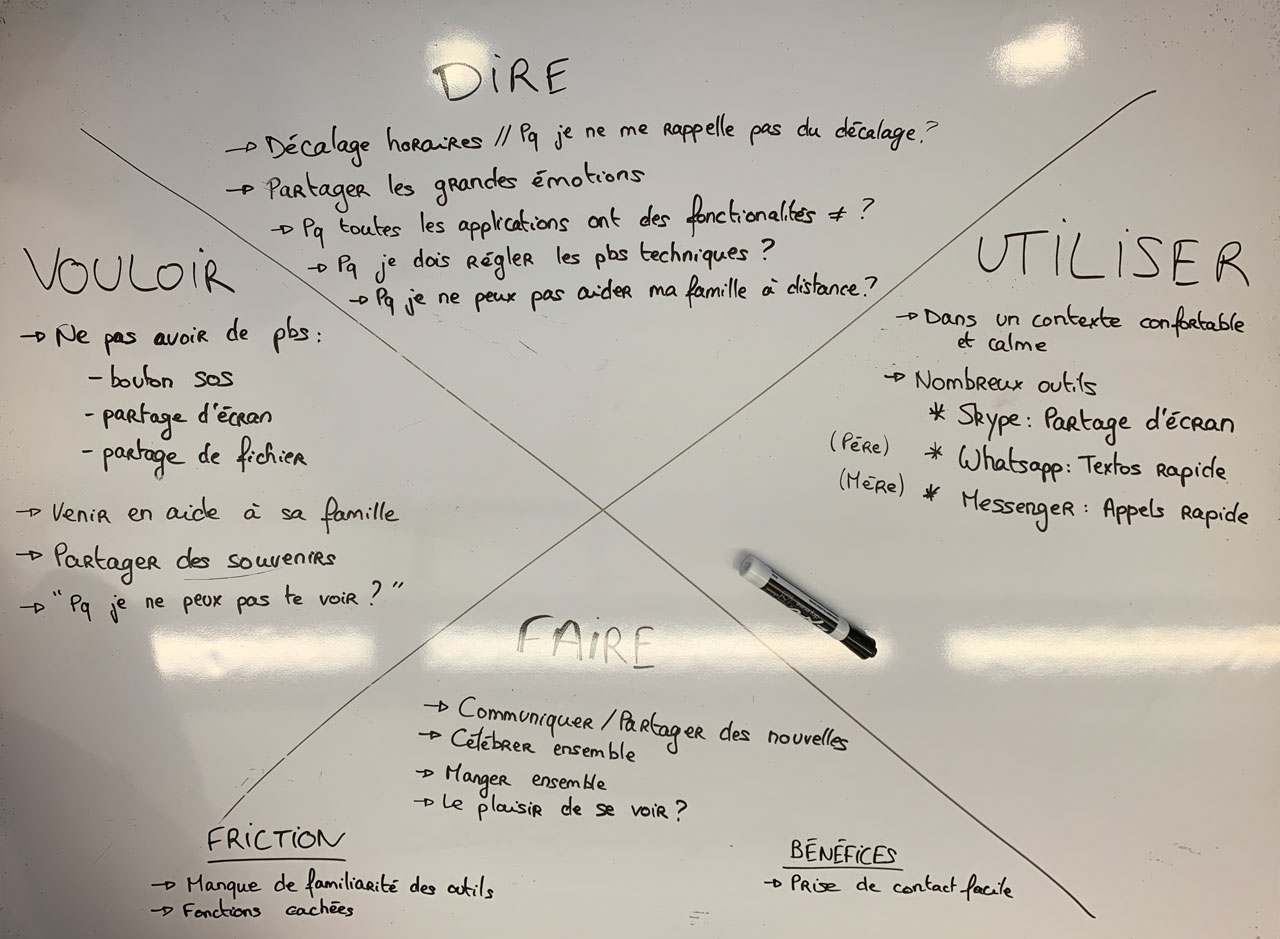 DIRE
→ Décalage horaires // Pq je ne me rappelle pas du décalage?
→ Partager les grandes émotions
→ Pq toutes les applications ont des fonctionalités ≠ ?
→ Pq je dois régler les pbs techniques ?
→ Pq je ne peux pas aider ma famille à distance?
VOULOIR
→ Ne pas avoir de pbs :
- bouton SOS
- partage d'écran
- partage de fichier
→ Venir en aide à sa famille
→ Partager des souvenirs
→ "Pq je ne peux pas te voir ?"
UTILISER
→ Dans un contexte confortable
et calme
→ Nombreux outils
* Skype : Partage d'écran
(Père) * Whatsapp : Textos rapide
(Mère) * Messenger : Appels rapide
FAIRE
→ Communiquer / Partager des nouvelles
→ Célébrer ensemble
→ Manger ensemble
→ Le plaisir de se voir ?
FRICTION
→ Manque de familiarité des outils
→ Fonctions cachées
BÉNÉFICES
→ Prise de contact facile